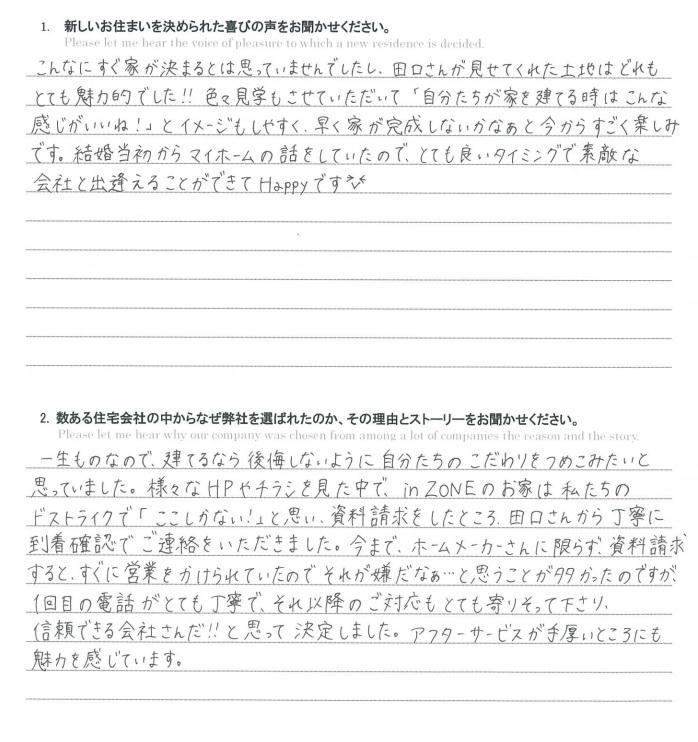 1. 新しいお住まいを決められた喜びの声をお聞かせください。
Please let me hear the voice of pleasure to which a new residence is decided.
こんなにすぐ家が決まるとは思っていませんでしたし、田口さんが見せてくれた土地はどれも
とても魅力的でした!! 色々見学もさせていただいて「自分たちが家を建てる時はこんな
感じがいいね!」とイメージもしやすく、早く家が完成しないかなぁと今からすごく楽しみ
です。結婚当初からマイホームの話をしていたので、とても良いタイミングで素敵な
会社と出逢えることができてHappyです
2. 数ある住宅会社の中からなぜ弊社を選ばれたのか、その理由とストーリーをお聞かせください。
Please let me hear why our company was chosen from among a lot of companies the reason and the story.
一生ものなので、建てるなら後悔しないように自分たちのこだわりをつめこみたいと
思っていました。様々なHPやチラシを見た中で、in ZONEのお家は私たちの
ドストライクで「ここしかない!」と思い、資料請求をしたところ、田口さんから丁寧に
到着確認でご連絡をいただきました。今まで、ホームメーカーさんに限らず、資料請求
すると、すぐに営業をかけられていたのでそれが嫌だなぁ…と思うことが多かったのですが、
1回目の電話がとても丁寧で、それ以降のご対応もとても寄りそって下さり、
信頼できる会社さんだ!!と思って決定しました。アフターサービスが手厚いところにも
魅力を感じています。